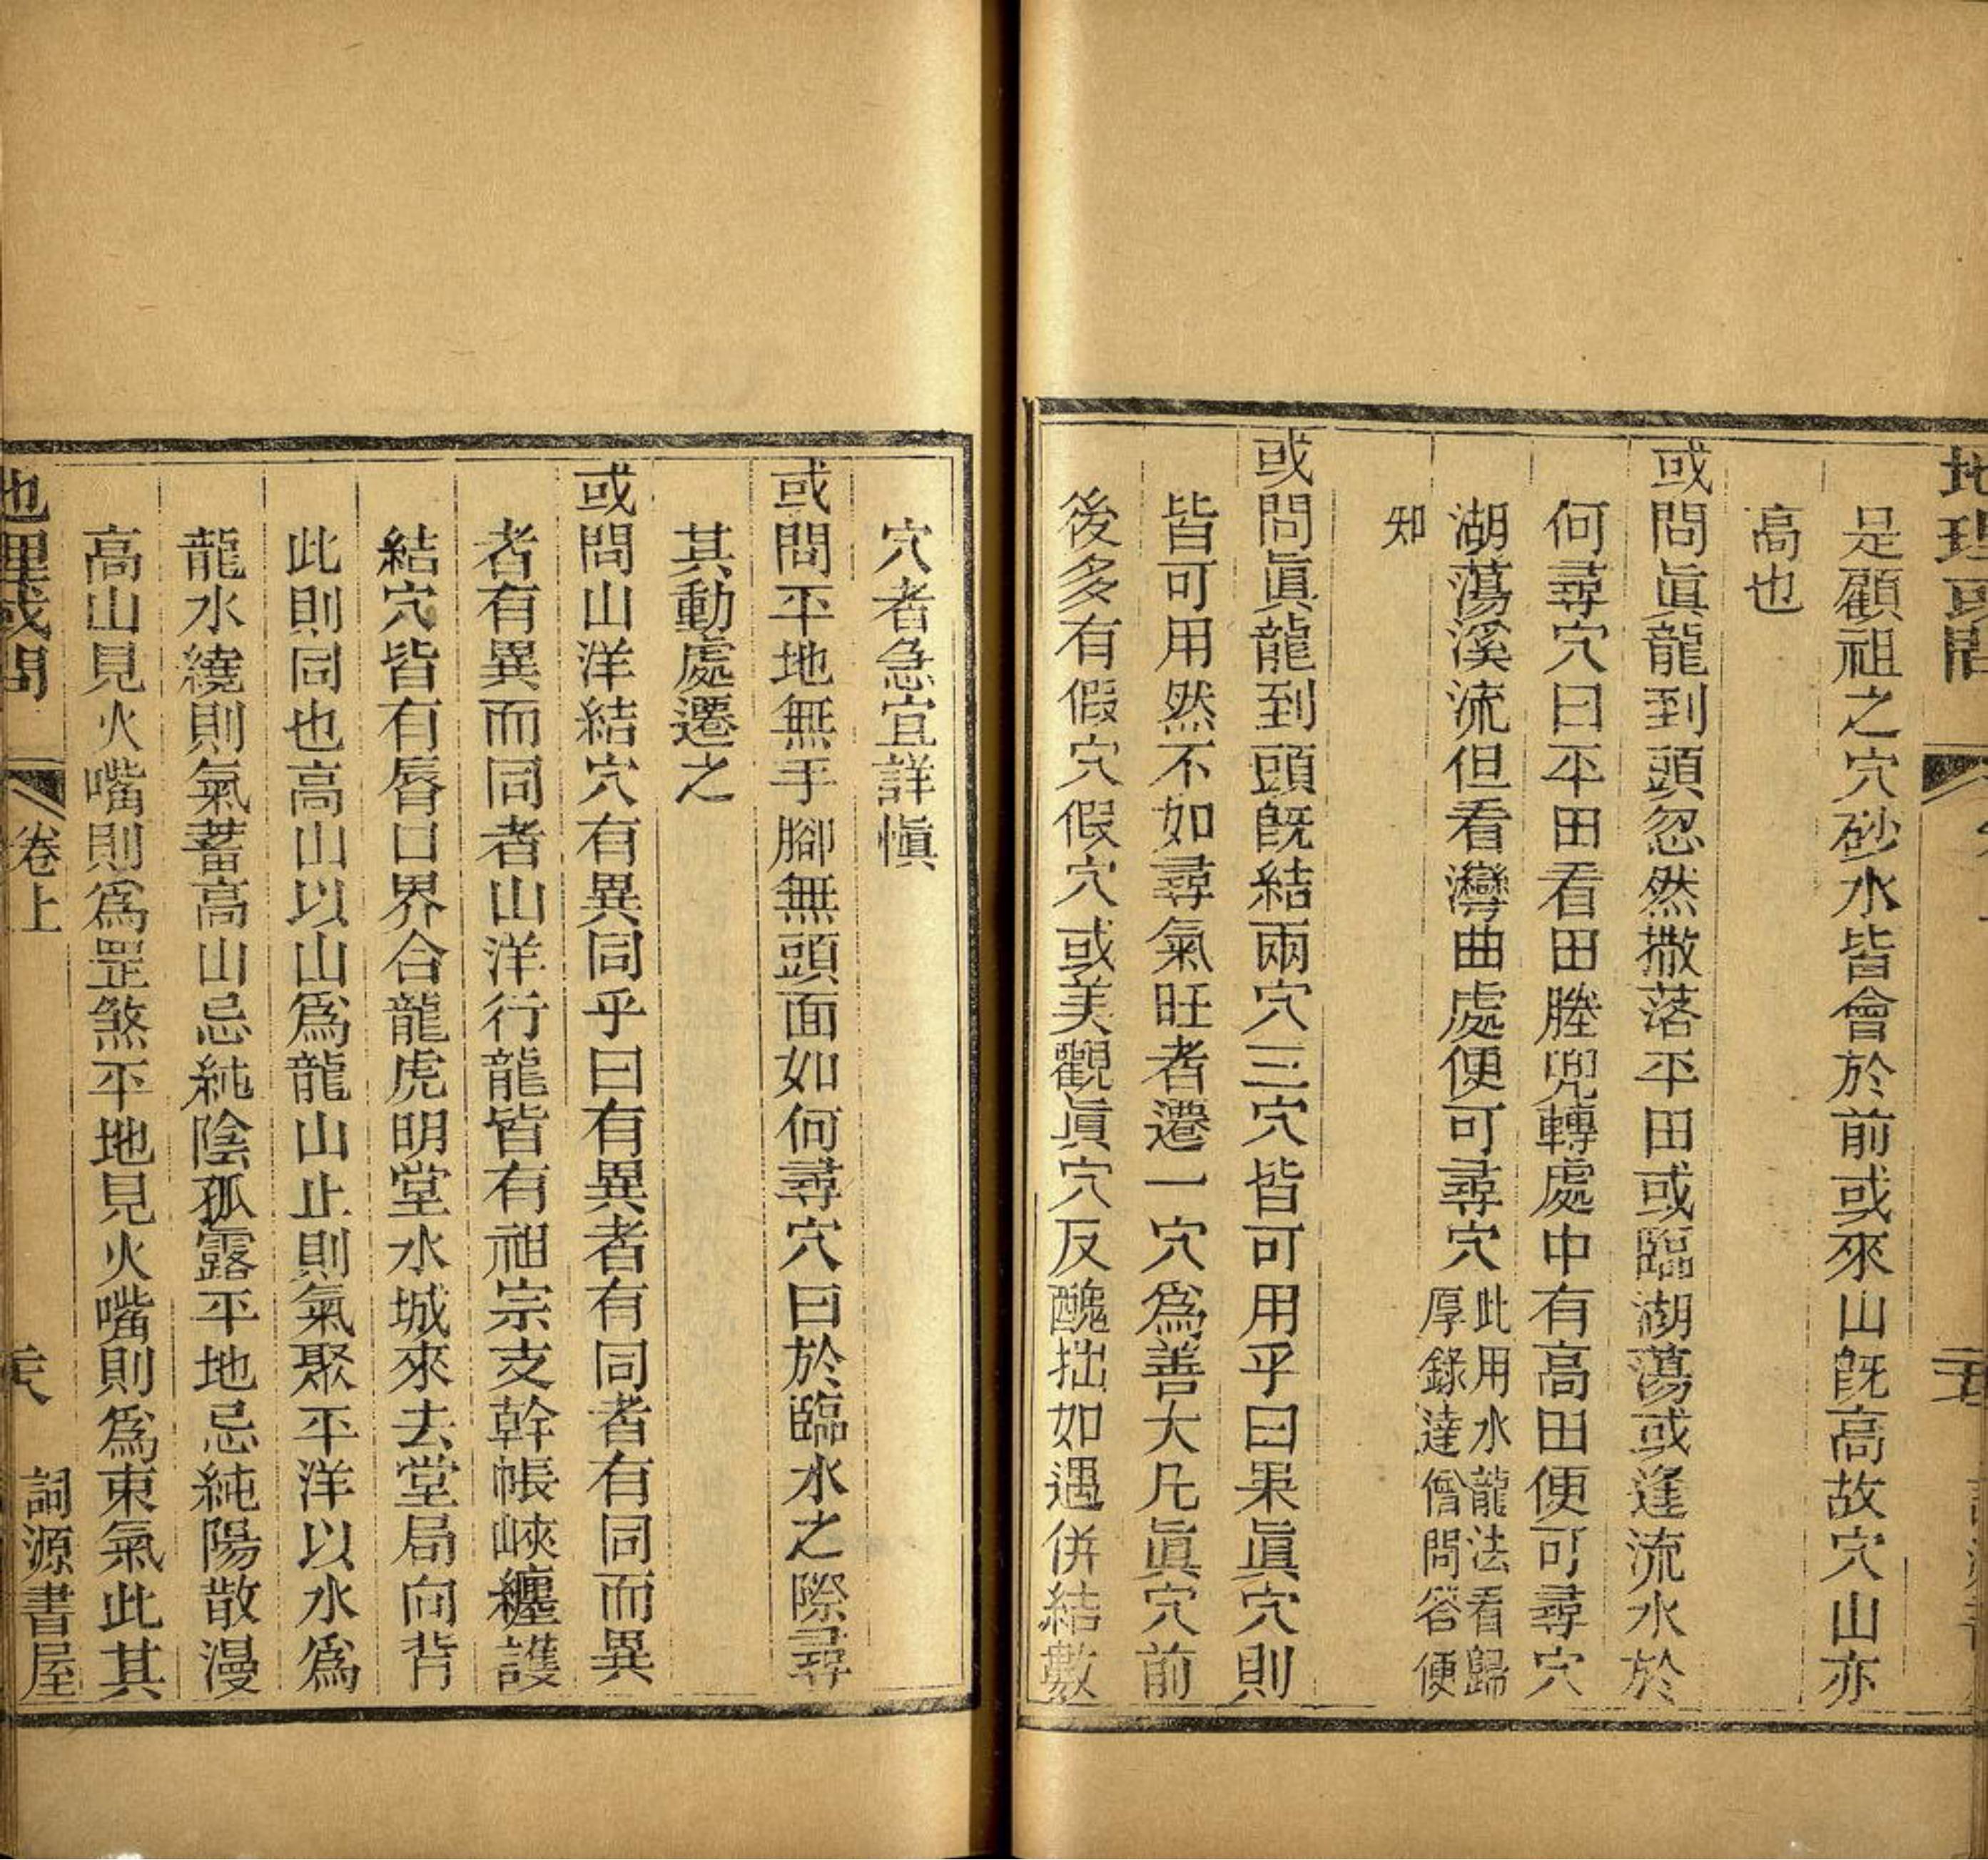 地理或問
是顧祖之穴砂水皆會於前或來山旣高故穴山亦
高也
或問眞龍到頭忽然撒落平田或臨湖蕩或逢流水於
何尋穴曰平田看田塍兜轉處中有高田便可尋穴
湖蕩溪流但看灣曲處便可尋穴此用水龍法看歸
厚錄達僧問答便
知
或問眞龍到頭旣結兩穴三穴皆可用乎曰果眞穴則
皆可用然不如尋氣旺者遷一穴爲善大凡眞穴前
後多有假穴假穴或美觀眞穴反醜拙如遇併結數
穴者急宜詳愼
或問平地無手腳無頭面如何尋穴曰於臨水之際尋
其動處遷之
或問山洋結穴有異同乎曰有異者有同者有同而異
者有異而同者山洋行龍皆有祖宗支幹帳峽纏護
結穴皆有唇口界合龍虎明堂水城來去堂局向背
此則同也高山以山爲龍山止則氣聚平洋以水爲
龍水繞則氣蓄高山忌純陰孤露平地忌純陽散漫
高山見火嘴則爲罡煞平地見火嘴則爲東氣此其
地理或問
卷上
詞源書屋